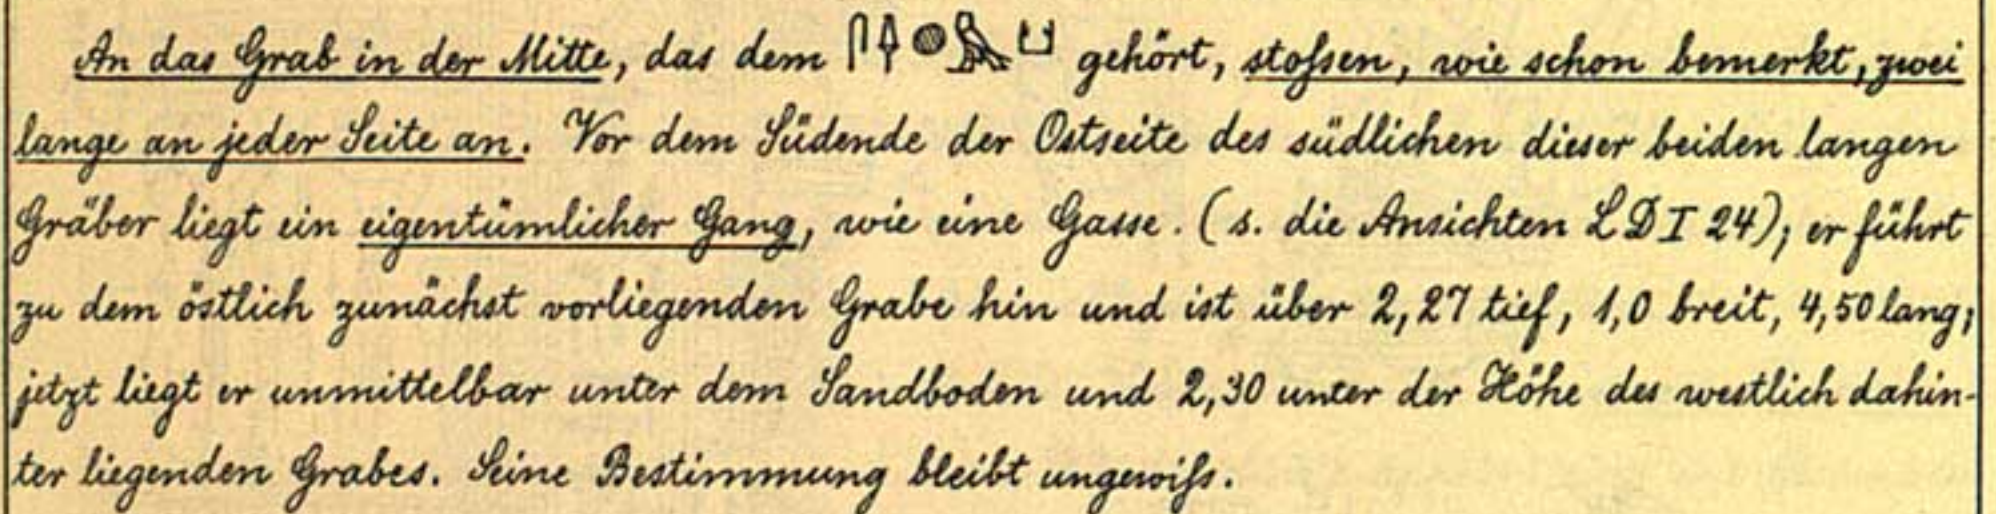 An das Grab in der Mitte, das dem 𓋴𓌂𓐍𓅓𓂓 gehört, stoſsen, wie schon bemerkt, zwei
lange an jeder Seite an. Vor dem Südende der Ostseite des südlichen dieser beiden langen
Gräber liegt ein eigentümlicher Gang, wie eine Gasse. (s. die Ansichten LD I 24); er führt
zu dem östlich zunächst vorliegenden Grabe hin und ist über 2,27 tief, 1,0 breit, 4,50 lang;
jetzt liegt er unmittelbar unter dem Sandboden und 2,30 unter der Höhe des westlich dahin-
ter liegenden Grabes. Seine Bestimmung bleibt ungewiſs.